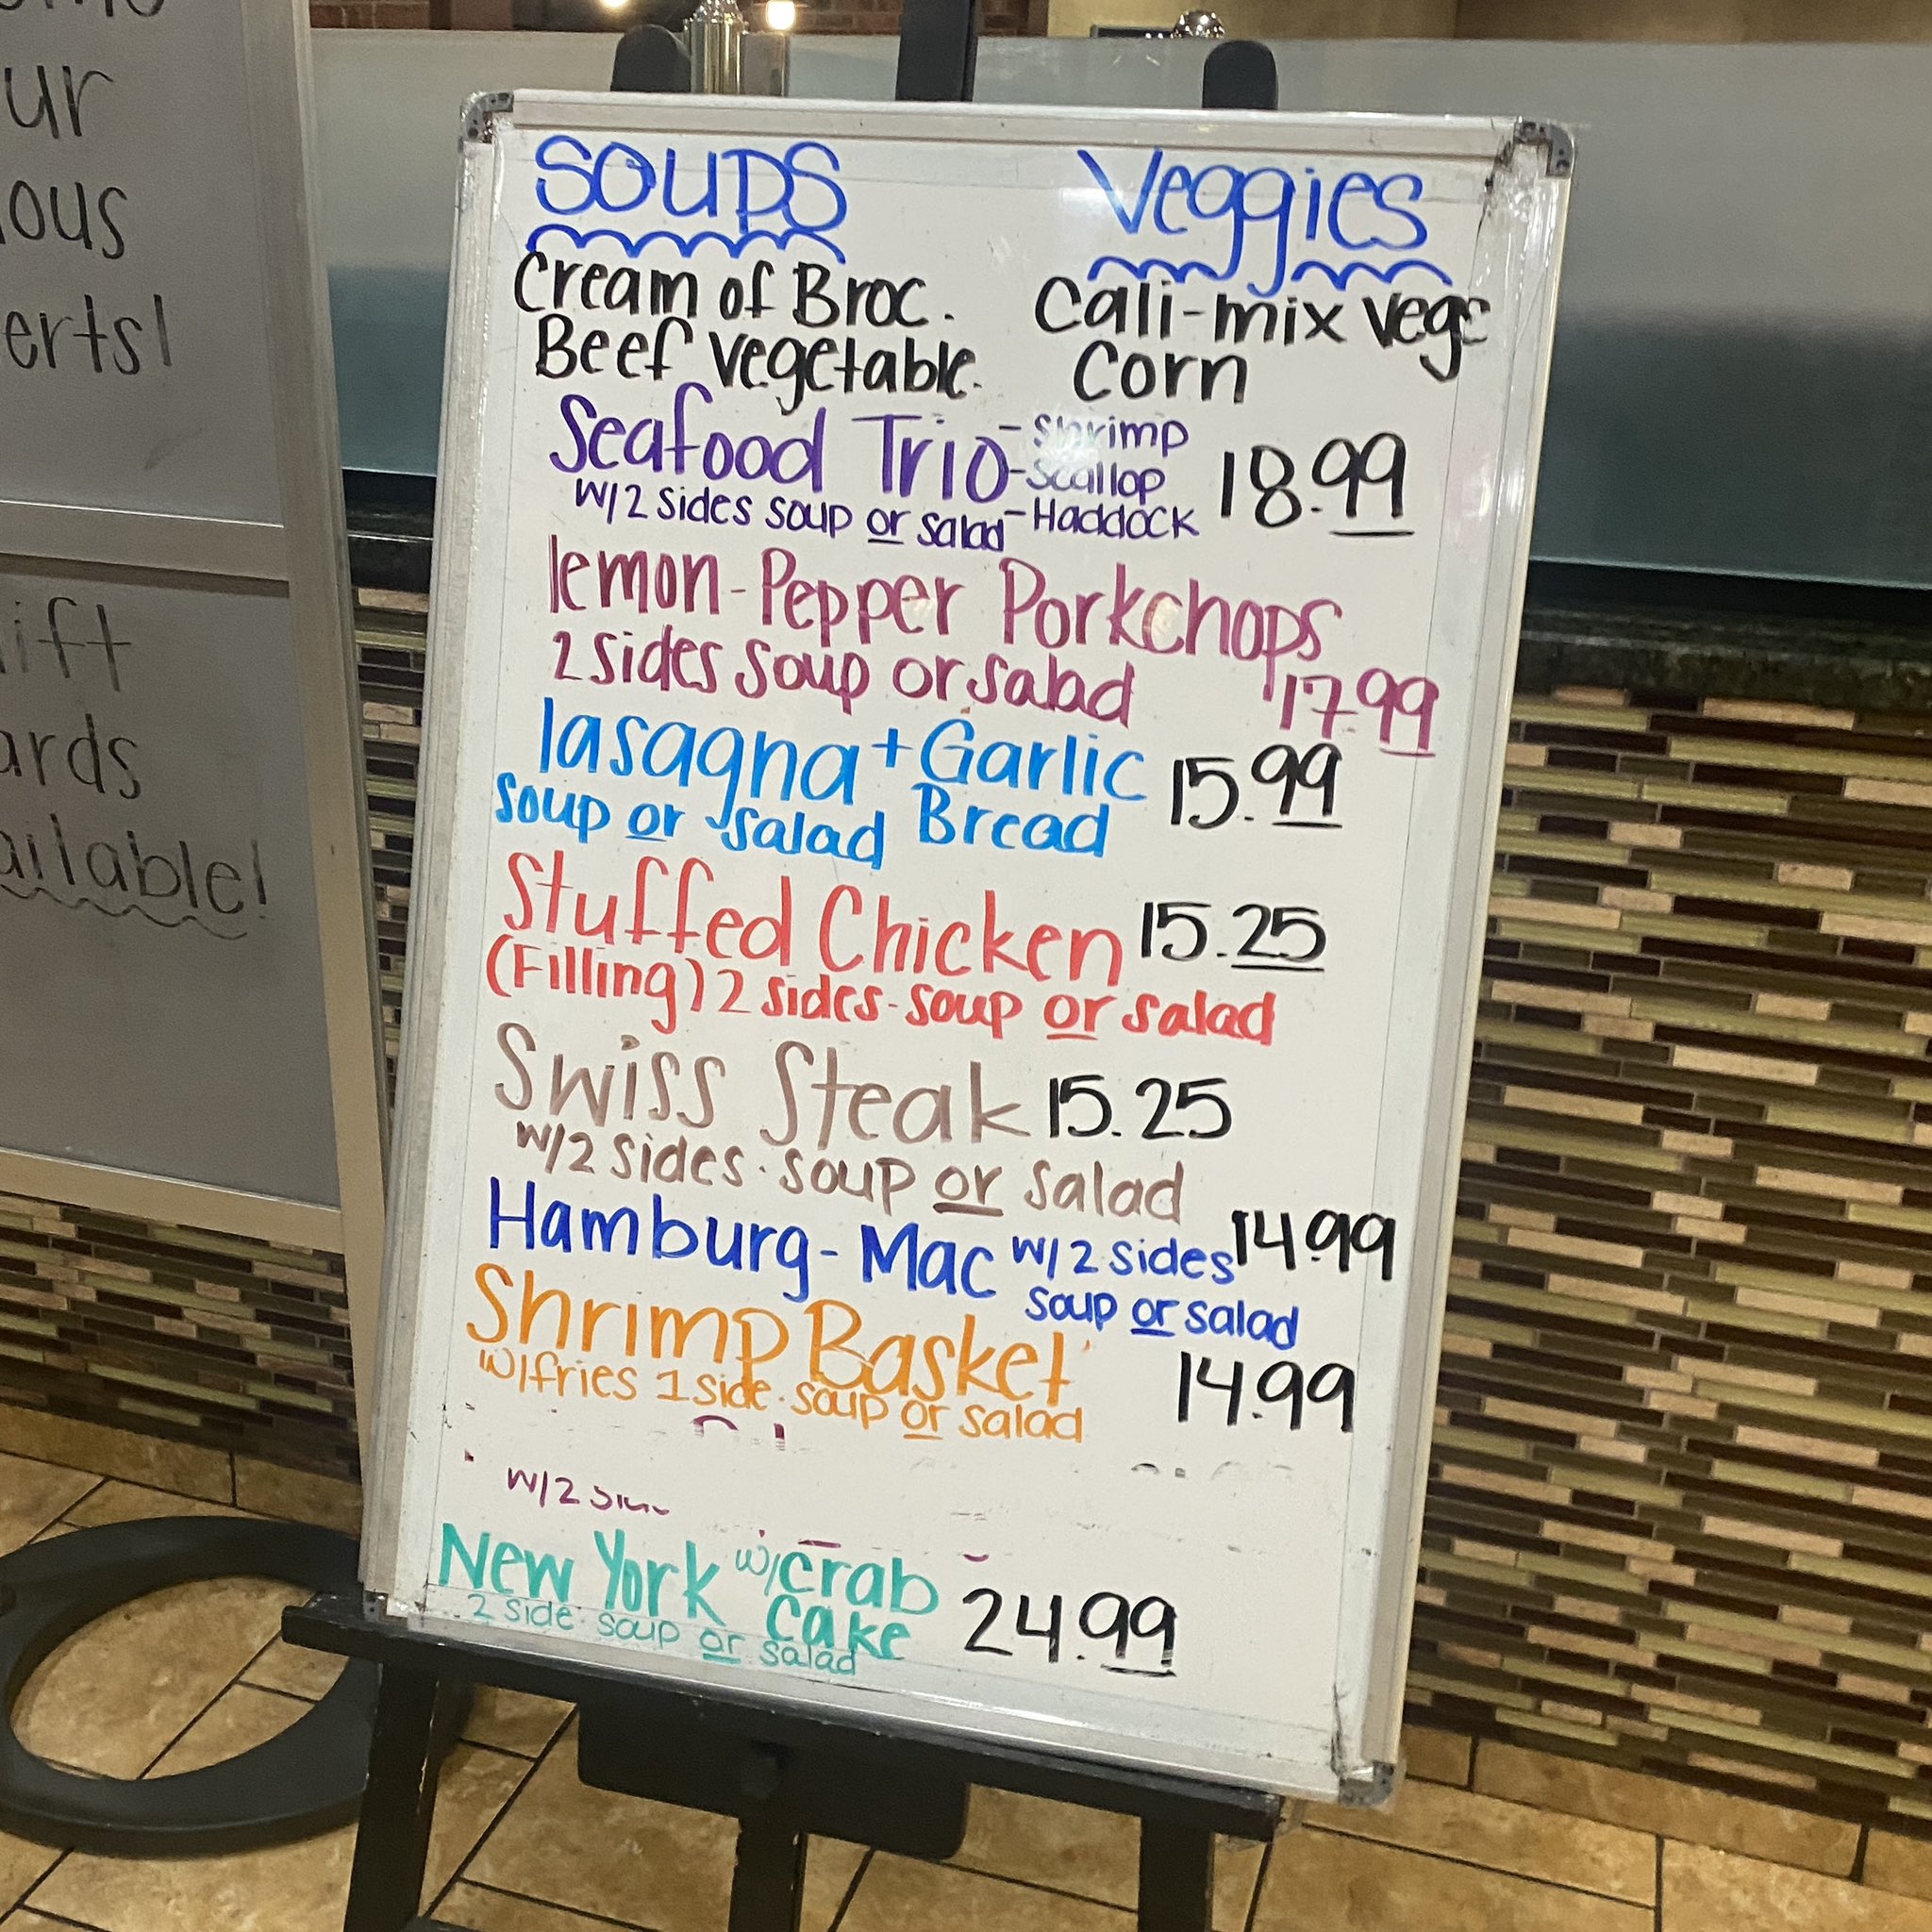 ur
ous
erts!
ift
ards
ailable!
Soups
Cream of Broc.
Beef vegetable.
Veggies
Cali-mix vege
Corn
Seafood Trio 18.99
-Shrimp
-Scallop
-Haddock
w/2 sides soup or salad
lemon-Pepper Porkchops
2 sides soup or salad 17.99
lasagna + Garlic Bread 15.99
soup or salad
Stuffed Chicken 15.25
(Filling) 2 sides-soup or salad
Swiss Steak 15.25
w/2 sides. soup or salad
Hamburg-Mac w/2 sides 14.99
soup or salad
Shrimp Basket 14.99
w/fries 1 side. soup or salad
w/2
New York w/crab cake 24.99
2 side. soup or salad